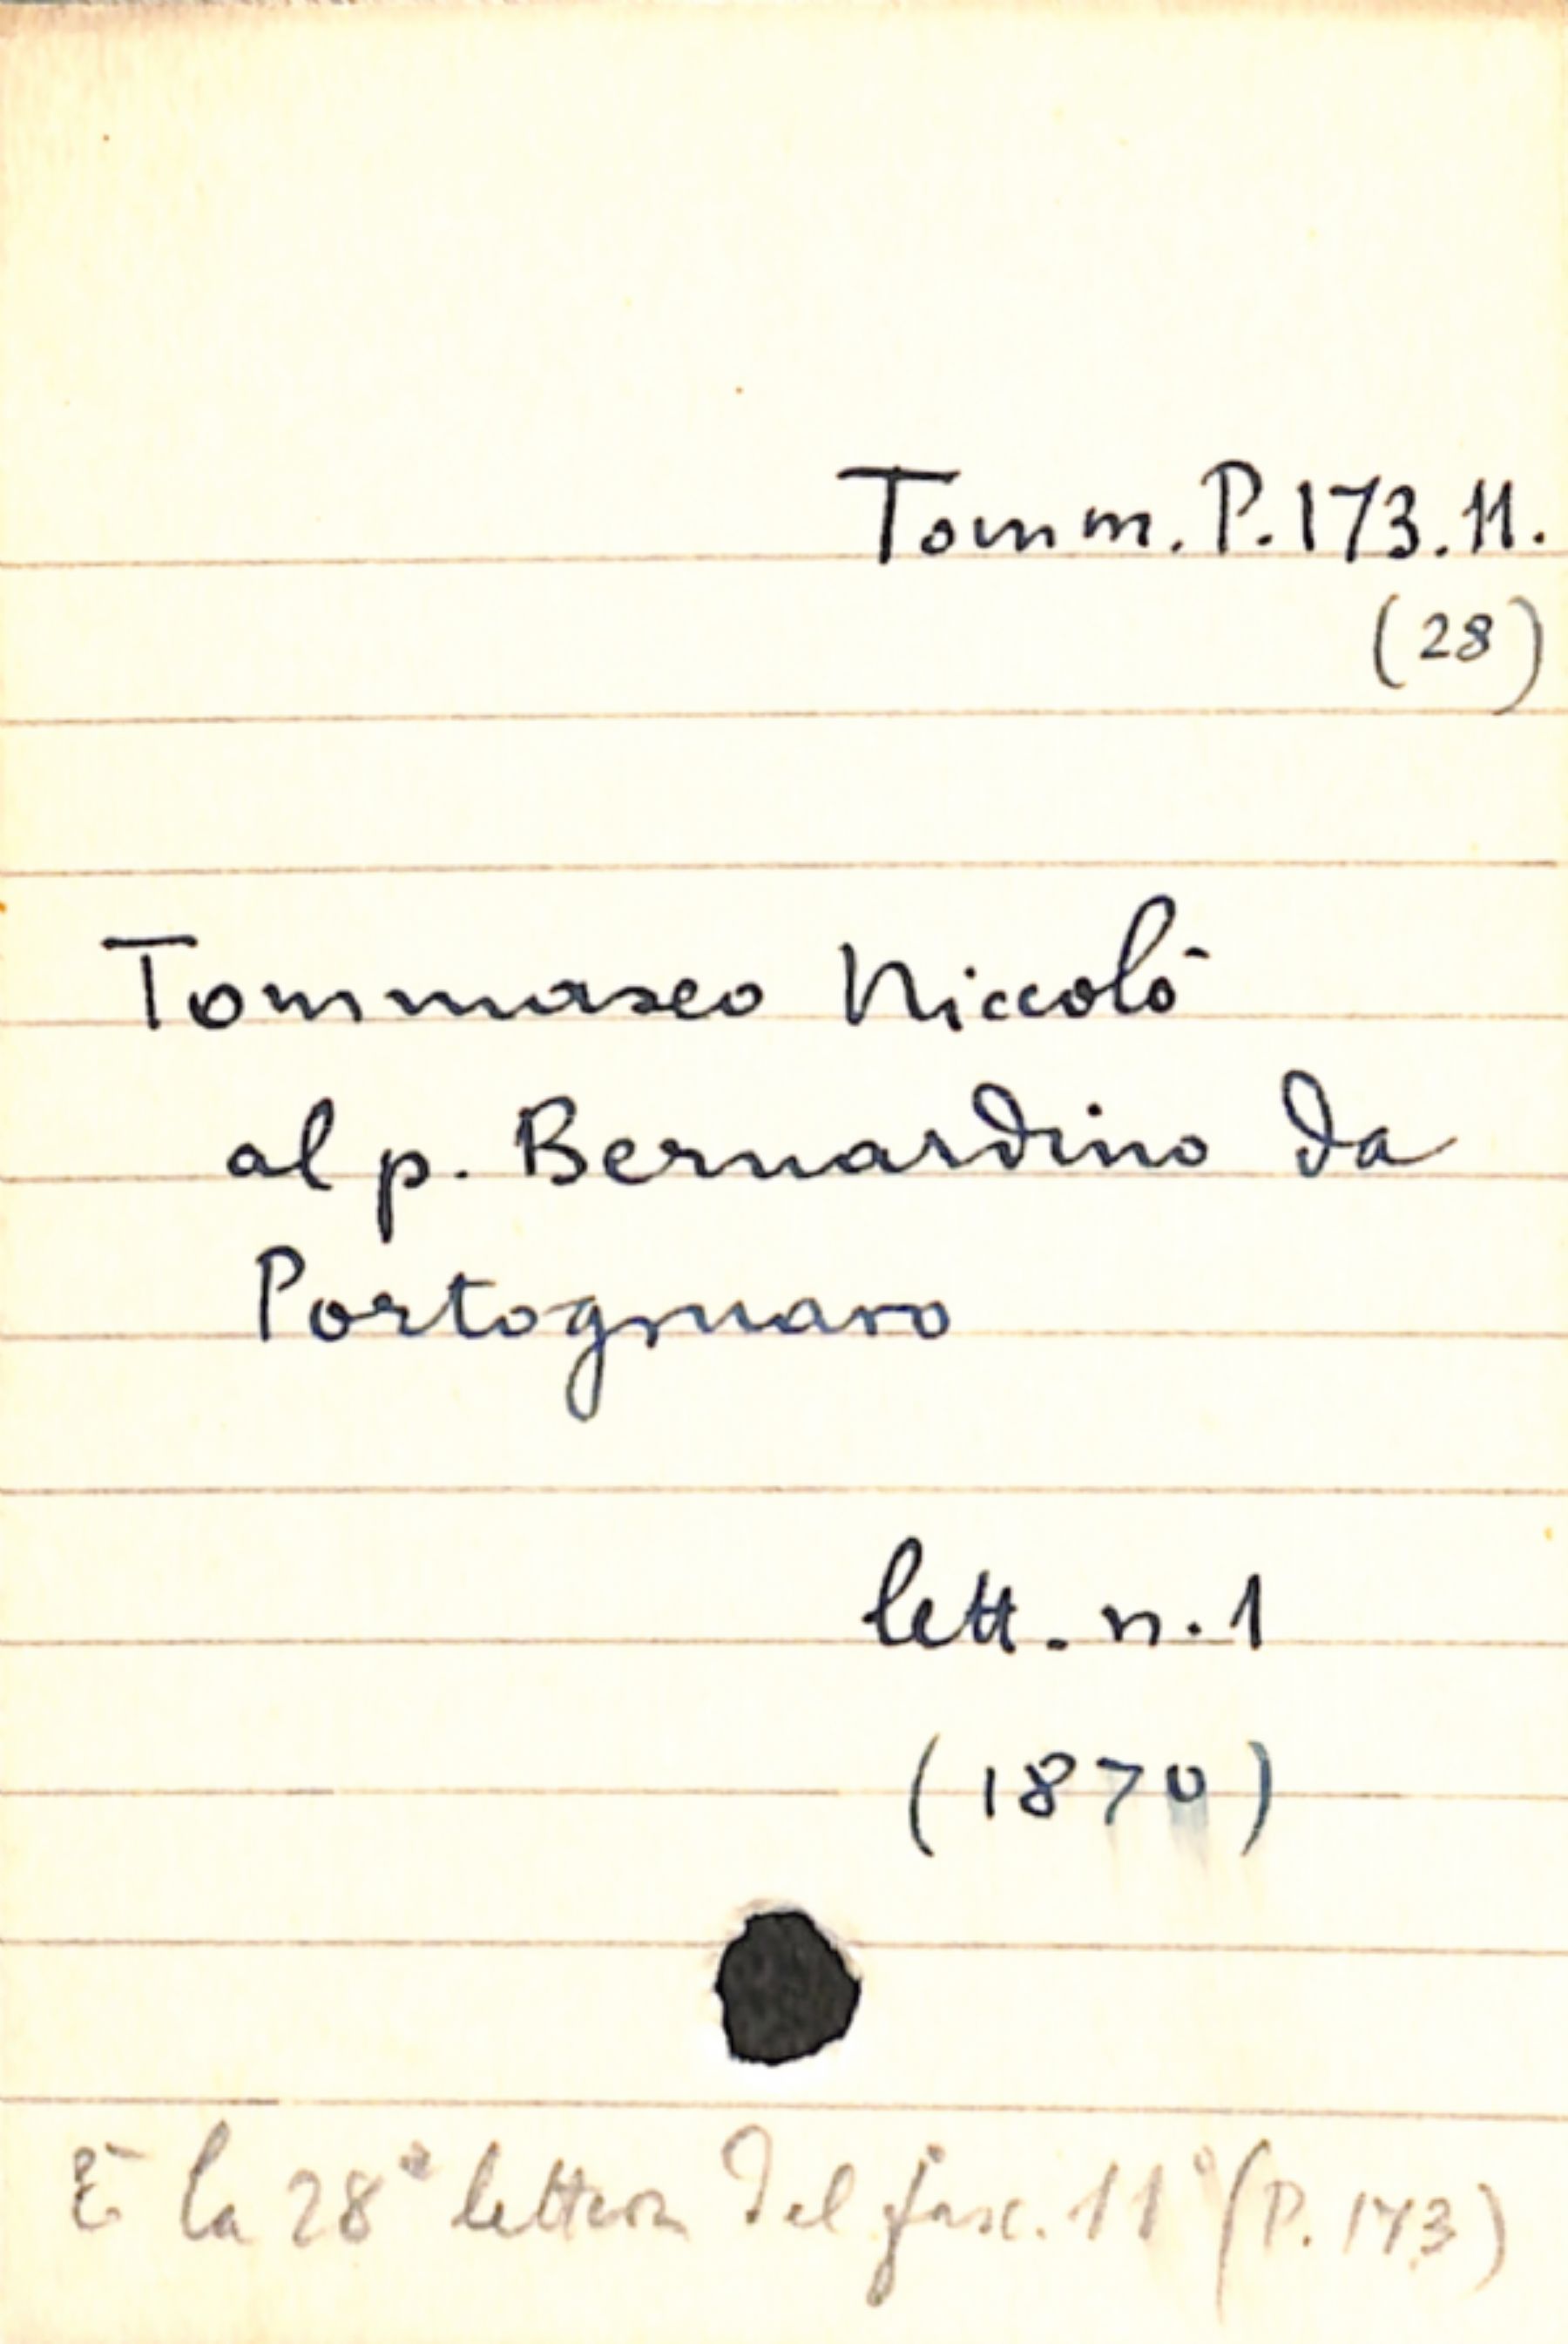 Tomm. P. 173. 11.
(28)
Tommaseo Niccolò
al p. Bernardino da
Portogruaro
lett. n. 1
(1870)
È la 28ª lettera del fasc. 11° (P. 173)